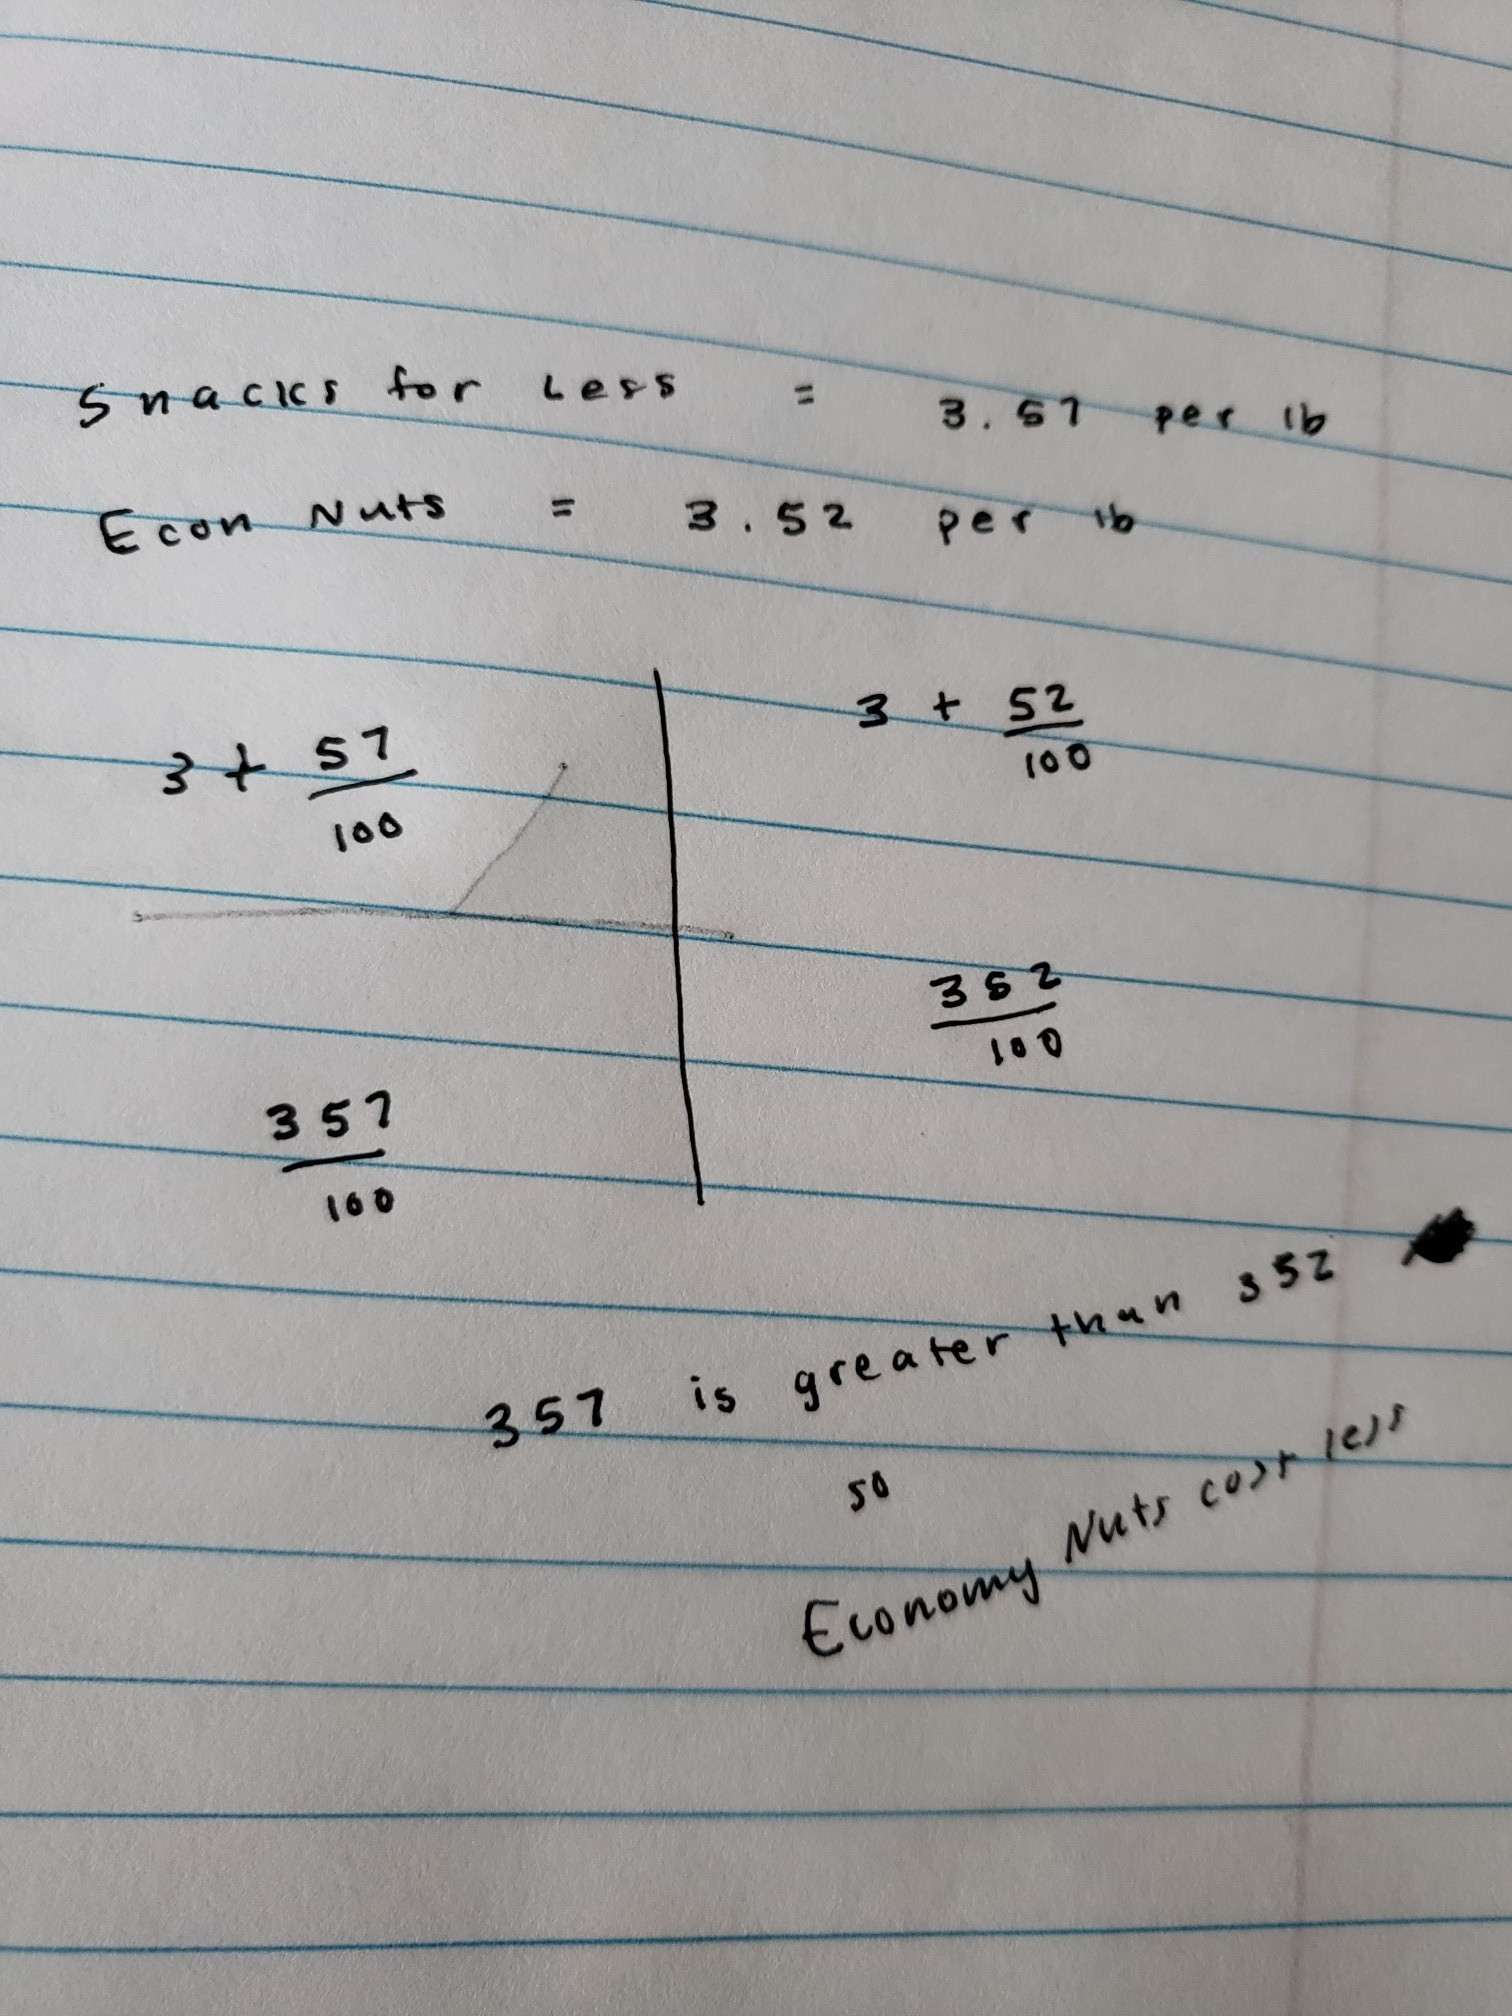 Snacks for Less = 3.57 per lb
Econ Nuts = 3.52 per lb
3 + 57/100
3 + 52/100
357/100
352/100
357 is greater than 352
so
Economy Nuts cost less